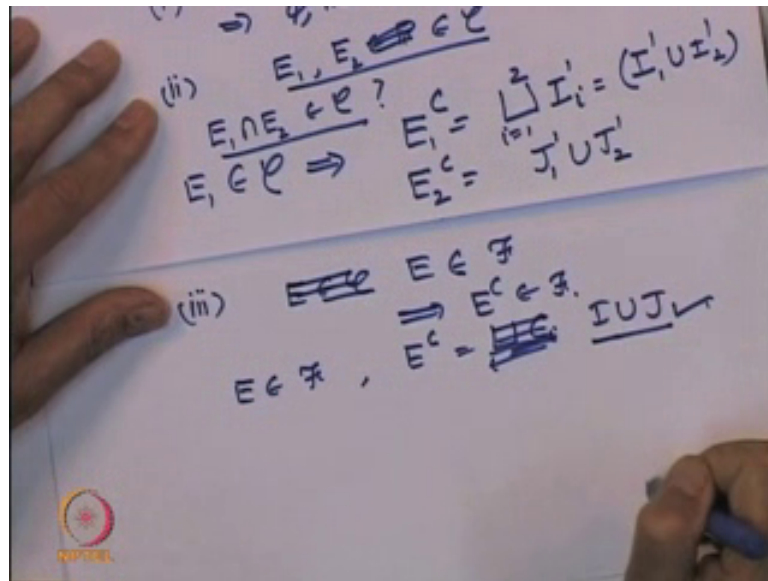 ⇒ φ,
(ii) E₁, E₂ ∈ 𝒞
E₁ ∩ E₂ ∈ 𝒞 ?
E₁ ∈ 𝒞 ⇒ E₁ᶜ = ⊔ᵢ₌₁² Iᵢ' = (I₁' ∪ I₂')
E₂ᶜ = J₁' ∪ J₂'
(iii) E ∈ ℱ
⇒ Eᶜ ∈ ℱ.
E ∈ ℱ , Eᶜ = I ∪ J ✓
NPTEL